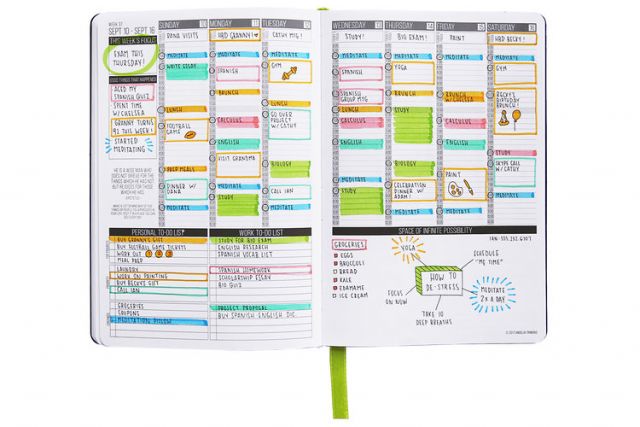 WEEK 37
SEPT 10 - SEPT 16
THIS WEEK'S FOCUS
EXAM THIS
THURSDAY!
GOOD THINGS THAT HAPPENED
ACED MY
SPANISH QUIZ
SPENT TIME
W/CHELSEA
GRANNY TURNS
92 THIS WEEK!
STARTED
MEDITATING
HE IS A WISE MAN WHO
DOES NOT GRIEVE FOR THE
THINGS WHICH HE HAS NOT
BUT REJOICES FOR THOSE
WHICH HE HAS
SUNDAY
DANA VISITS
MEDITATE
WRITE ESSAY
LUNCH
FOOTBALL
GAME
MEAL PREP
DINNER W/
DANA
MEDITATE
MONDAY 11
HBD GRANNY!
MEDITATE
SPANISH
BRUNCH
CALCULUS
ENGLISH
VISIT GRANDMA
MEDITATE
STUDY
TUESDAY
CATHY MTG!
MEDITATE
GYM
LUNCH
GO OVER
PROJECT
W/CATHY
BIOLOGY
CALL IAN
MEDITATE
WEDNESDAY
STUDY!
MEDITATE
SPANISH
SPANISH
GROUP MTG
LUNCH
CALCULUS
ENGLISH
MEDITATE
STUDY
THURSDAY
BIG EXAM!
MEDITATE
YOGA
BRUNCH
STUDY
BIOLOGY
CELEBRATION
DINNER W/
ADAM!
MEDITATE
FRIDAY
PAINT
MEDITATE
SPANISH
BRUNCH
W/CHELSEA
CALCULUS
ENGLISH
PAINT
MEDITATE
SATURDAY
HBD BECKY!
MEDITATE
GYM
BECKY'S
BIRTHDAY
BRUNCH!
STUDY
SKYPE CALL
W/CATHY
MEDITATE
PERSONAL TO-DO LIST
BUY GRANNY'S GIFT
BUY FOOTBALL GAME TICKETS
WORK OUT
MEAL PREP
LAUNDRY
WORK ON PAINTING
BUY BECKYS GIFT
CALL IAN
GROCERIES
COUPONS
MEDITATION PILLOW
WORK TO-DO LIST
STUDY FOR BIO EXAM
ENGLISH RESEARCH
SPANISH VOCAB LIST
SPANISH HOMEWORK
SCHOLARSHIP ESSAY
BIO QUIZ
PROJECT PROPOSAL
BUY SPANISH ENGLISH DIC.
SPACE OF INFINITE POSSIBILITY
GROCERIES
EGGS
BROCCOLI
BREAD
KALE
EDAMAME
ICE CREAM
YOGA
SCHEDULE
"ME TIME"
HOW TO
DE-STRESS
FOCUS
ON NOW
TAKE 10
DEEP BREATHS
MEDITATE
2X A DAY